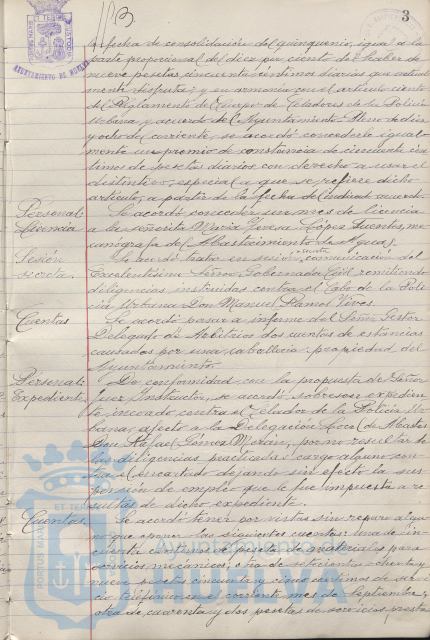 3
AYUNTAMIENTO DE HUELVA
la fecha de consolidación del quinquenio, igual a la
parte proporcional del diez por ciento del haber de
nueve pesetas, cincuenta céntimos diarias que actual-
mente disfruta; y en armonía con el artículo ciento
del Reglamento del Cuerpo de Celadores de la Policía
Urbana, y acuerdo del Ayuntamiento Pleno de diez
y ocho del corriente, se acordó concederle igual-
mente un premio de constancia de cincuenta cén-
timos de pesetas diarios con derecho a usar el
distintivo especial a que se refiere dicho
artículo, a partir de la fecha del indicado acuerdo.
Personal:
Licencia
Se acordó conceder un mes de licencia
a la señorita María Teresa López Fuentes, me-
canógrafa del Abastecimiento de Aguas.
Sesión
secreta.
Se acordó tratar en sesión secreta, comunicación del
Excelentísimo Señor Gobernador Civil remitiendo
diligencias instruidas contra el Cabo de la Poli-
cía Urbana Don Manuel Ramos Vives.
Cuentas
Se acordó pasar a informe del Señor Gestor
Delegado de Arbitrios dos cuentas de estancias
causadas por una caballería propiedad del
Ayuntamiento.
Personal:
Expediente.
De conformidad con la propuesta del Señor
Juez Instructor, se acordó sobreseer expedien-
te, incoado contra el Celador de la Policía Ur-
bana, afecto a la Delegación Local de Abastos
Don Rafael Gómez, por no resultar de
las diligencias practicadas cargo alguno con-
tra el encartado dejando sin efecto la sus-
pensión de empleo que le fue impuesta a re-
sultas de dicho expediente.
Cuentas
Se acordó tener por vistas sin reparo algu-
no que oponer las siguientes cuentas: Una de cin-
cuenta céntimos de peseta de materiales para
servicios mecánicos; otra de setecientas ochenta y
nueve pesetas cincuenta y cinco céntimos de servi-
cio telefónico en el corriente mes de Septiembre;
otra de cuarenta y dos pesetas de servicios presta-
PORTUS MARIS ET TERRAE CUSTODIA
Ayuntamiento de
HUELVA